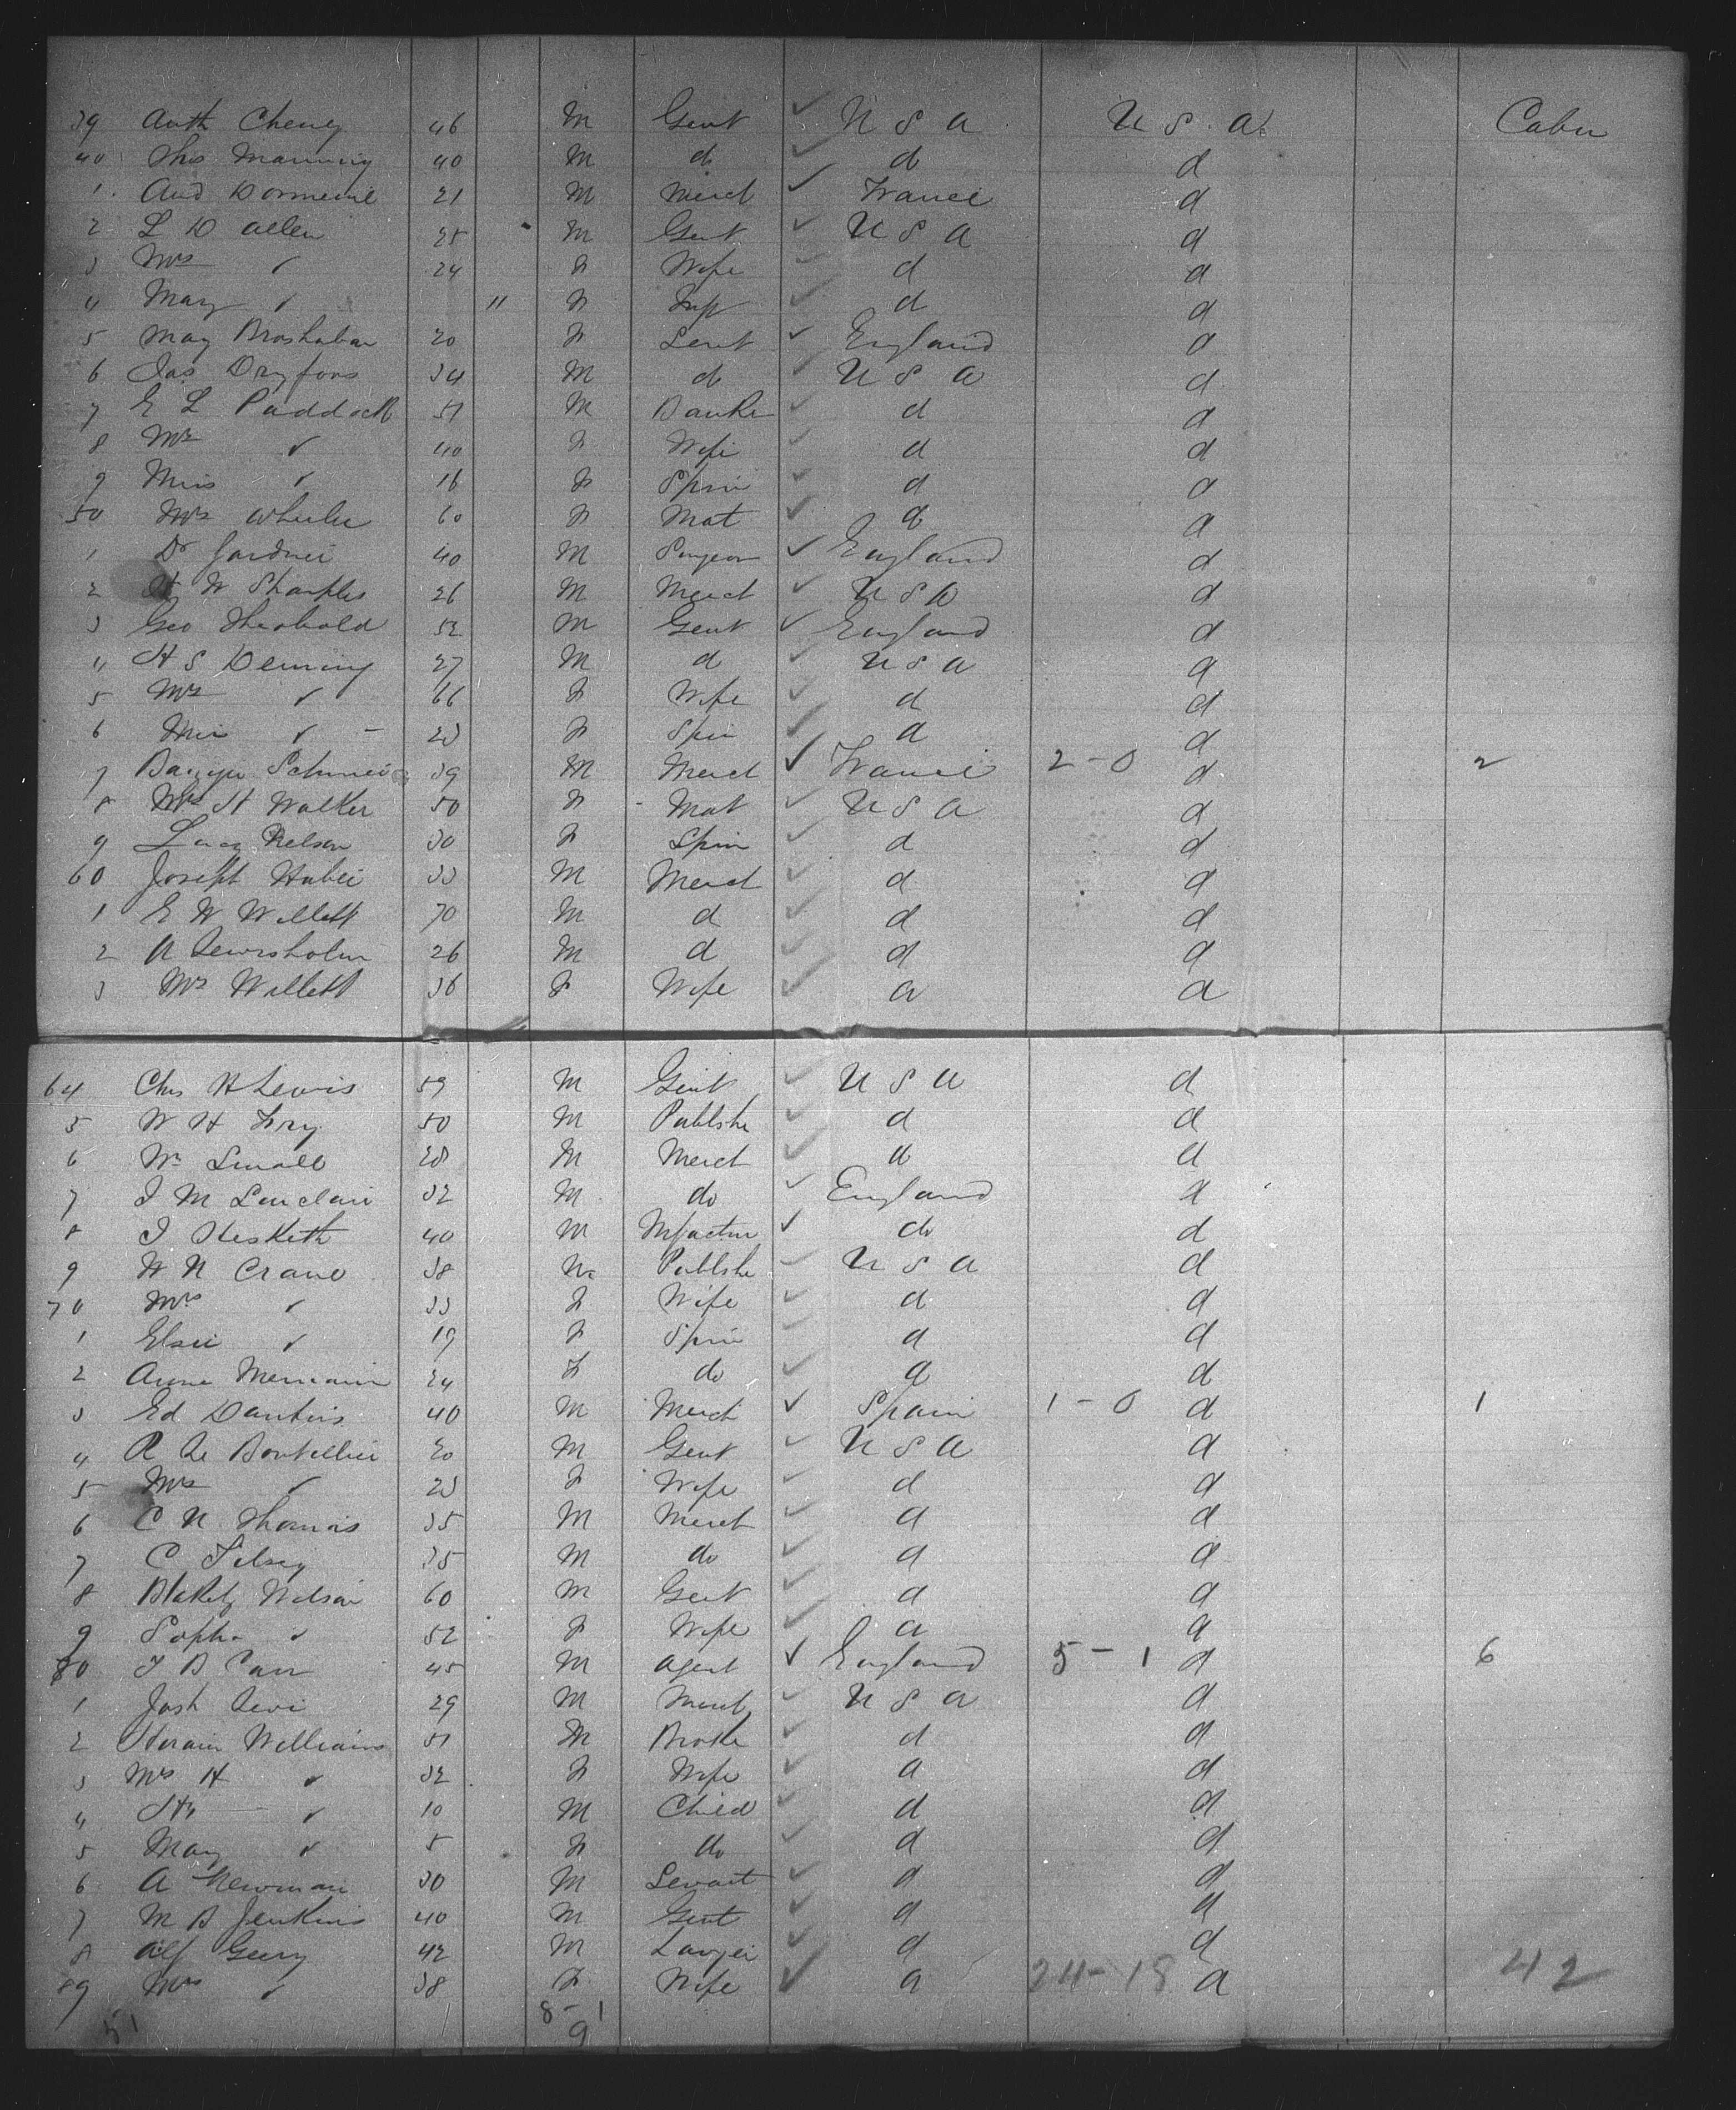 39 Auth Cheney 46 M Gent U S A U S A Cabn
40 Thos Manning 40 M do do d
1 And Dormeuil 21 M Merct France d
2 L D Allen 25 M Gent U S A d
3 Mrs " 24 F Wife d d
4 May " 11 F Inft d d
5 May 20 F Servt England d
6 Jas Dryfoos 34 M do U S A d
7 E L Paddock 51 M Banker d d
8 Mrs " 40 F Wife d d
9 Miss " 16 F Spin d d
50 Mrs Wheeler 60 F Mat do d
1 Dr Gardner 40 M Surgeon England d
2 H W Sharples 26 M Merct U S A d
3 Geo Theobald 52 M Gent England d
4 H S Deming 27 M d U S A d
5 Mrs " 66 F Wife d d
6 Miss " - 23 F Spin d d
7 39 M Merct France 2-0 d 2
8 Mrs H Walker 50 F Mat U S A d
9 Lucy Nelson 30 F Spin d d
60 Joseph Huber 33 M Merct d d
1 E W Willett 70 M d d d
2 A Lewisholm 26 M d d d
3 Mrs Willett 36 F Wife d d
64 Chs H Lewis 59 M Gent U S A d
5 W H Fry 50 M Publshr d d
6 Wm Small 28 M Merct do d
7 J M Sinclair 32 M do England d
8 J Hesketh 40 M Mfactur do d
9 W N Crane 38 M Publshr U S A d
70 Mrs " 33 F Wife d d
1 Elsie " 19 F Spin d d
2 Anne Merriam 24 F do d d
3 Ed 40 M Merct Spain 1-0 d 1
4 R Le Boutellier 20 M Gent U S A d
5 Mrs " 23 F Wife d d
6 C N Thomas 35 M Merct d d
7 C 35 M do d d
8 Blakely Wilson 60 M Gent d d
9 Soph " 52 F Wife d d
80 J B Carr 45 M Agent England 5-1 d 6
1 Josh Levi 29 M Merct U S A d
2 Hiram Williams 51 M Broker d d
3 Mrs H " 32 F Wife d d
4 Hy " 10 M Child d d
5 May " 5 F do d d
6 A Newman 30 M Servant d d
7 M B Jenkins 40 M Gent d d
8 Alf Geery 42 M Lawyer d d
89 Mrs " 38 F Wife d 24-18 d 42
51 8-1
9